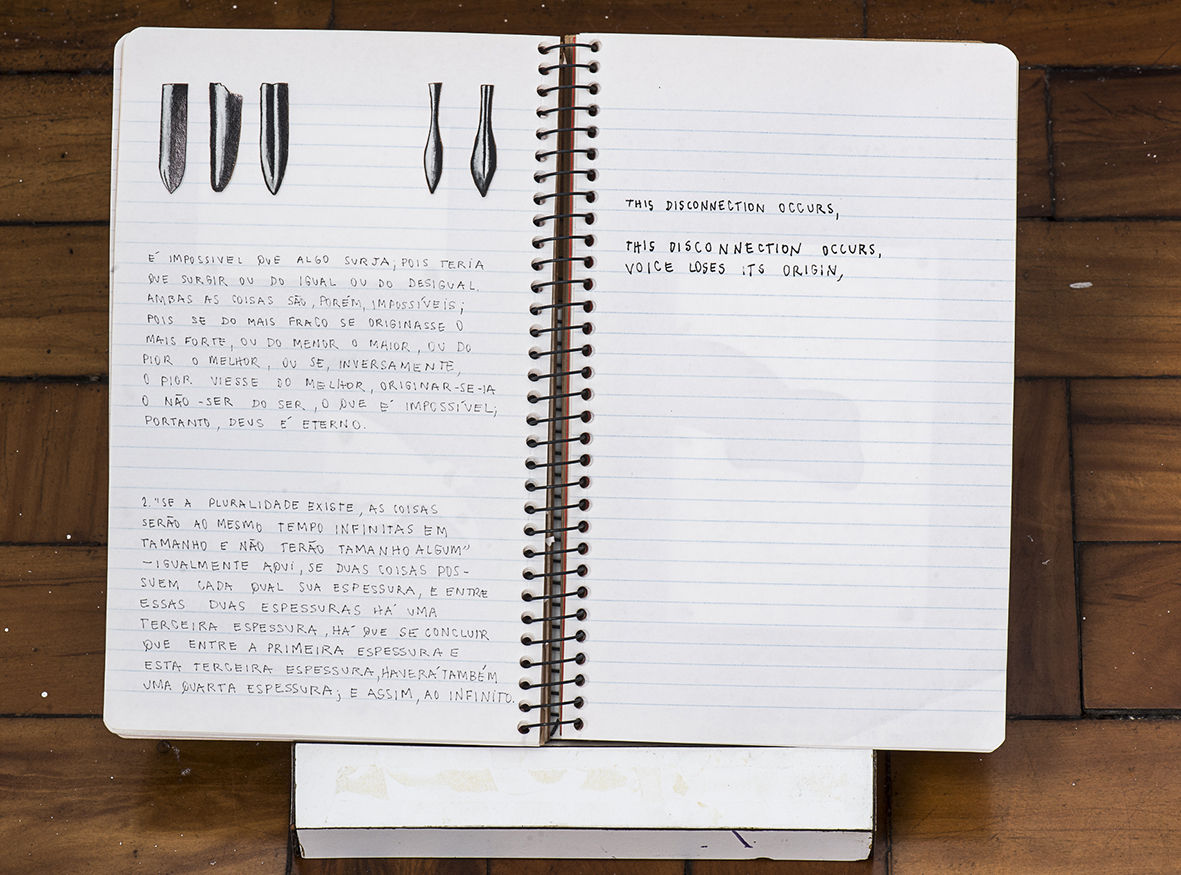 E' IMPOSSIVEL QUE ALGO SURJA, POIS TERIA
QUE SURGIR OU DO IGUAL OU DO DESIGUAL.
AMBAS AS COISAS SÃO, PORÉM, IMPOSSÍVEIS;
POIS SE DO MAIS FRACO SE ORIGINASSE O
MAIS FORTE, OU DO MENOR O MAIOR, OU DO
PIOR O MELHOR, OU SE, INVERSAMENTE,
O PIOR VIESSE DO MELHOR, ORIGINAR-SE-IA
O NÃO-SER DO SER, O QUE E' IMPOSSÍVEL;
PORTANTO, DEUS E' ETERNO.
2. "SE A PLURALIDADE EXISTE, AS COISAS
SERÃO AO MESMO TEMPO INFINITAS EM
TAMANHO E NÃO TERÃO TAMANHO ALGUM"
– IGUALMENTE AQUI, SE DUAS COISAS POS-
SUEM CADA QUAL SUA ESPESSURA, E ENTRE
ESSAS DUAS ESPESSURAS HA' UMA
TERCEIRA ESPESSURA, HA' QUE SE CONCLUIR
QUE ENTRE A PRIMEIRA ESPESSURA E
ESTA TERCEIRA ESPESSURA, HAVERA' TAMBÉM
UMA QUARTA ESPESSURA; E ASSIM, AO INFINITO.
THIS DISCONNECTION OCCURS,
THIS DISCONNECTION OCCURS,
VOICE LOSES ITS ORIGIN,